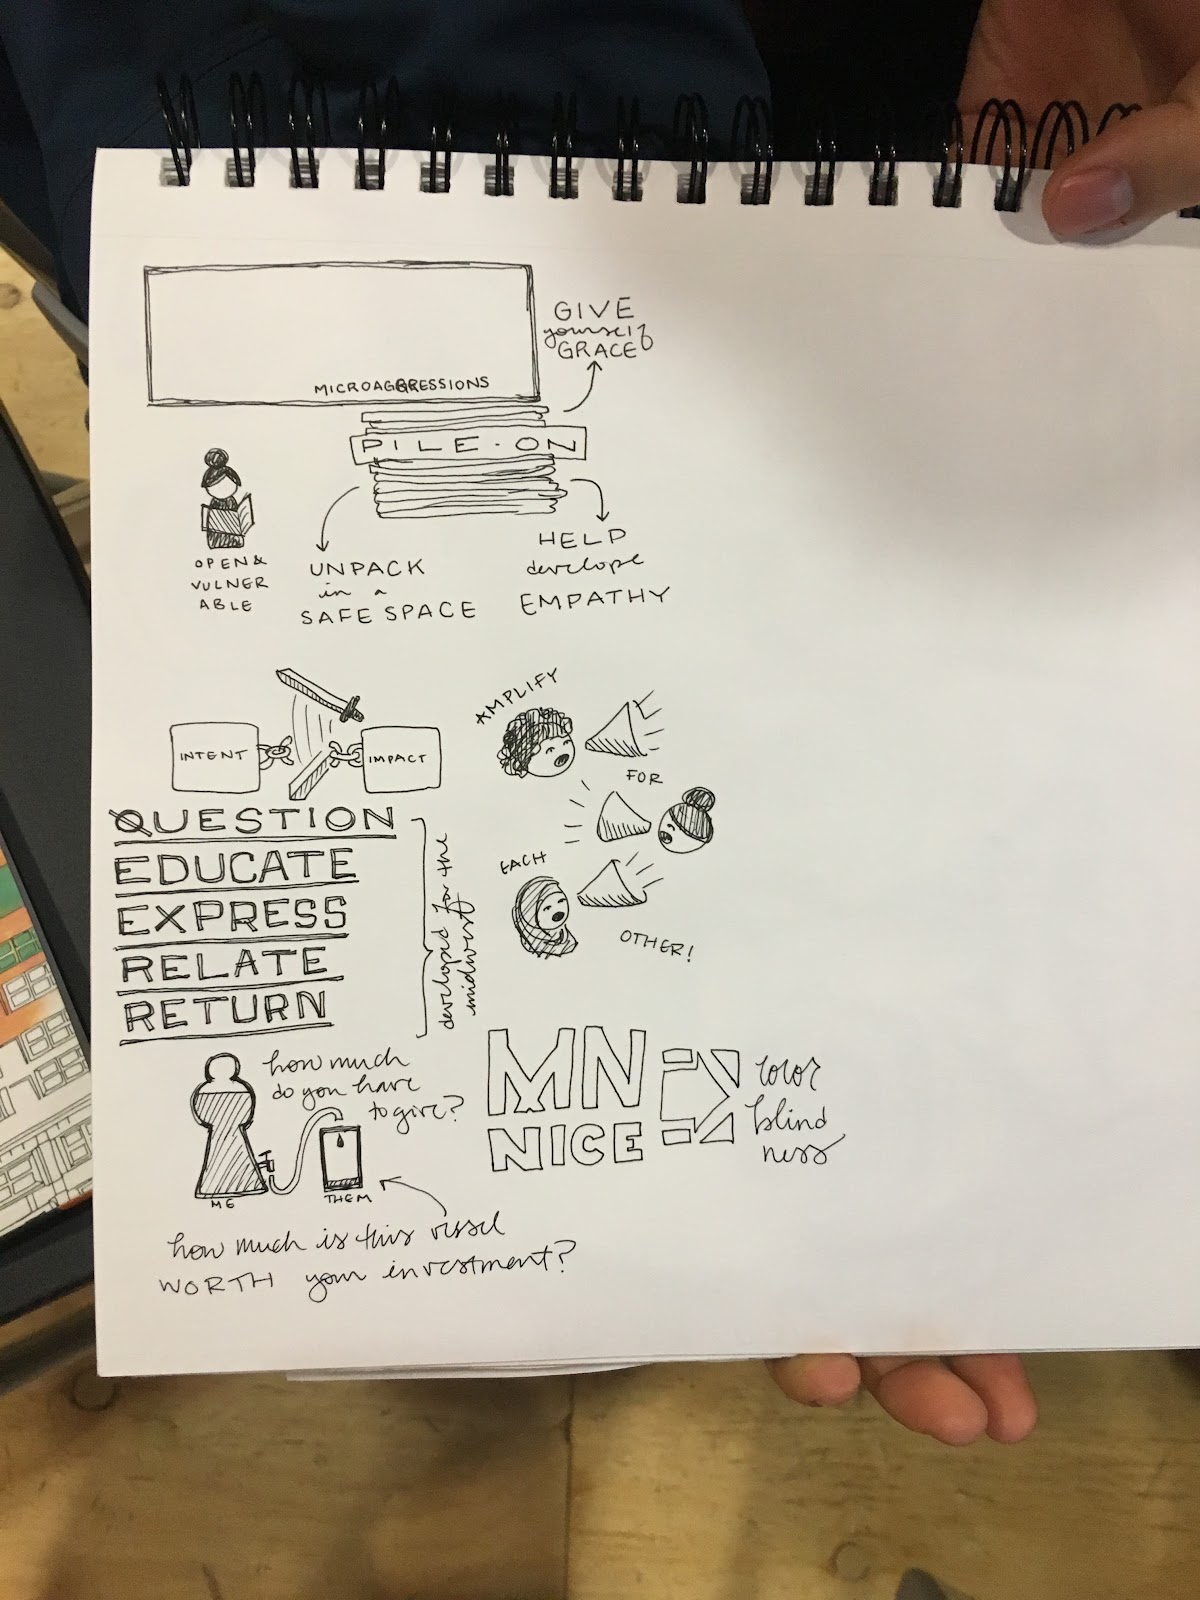 MICROAGGRESSIONS
GIVE
yourself
GRACE
PILE-ON
OPEN &
VULNER
ABLE
UNPACK
in a
SAFE SPACE
HELP
develope
EMPATHY
INTENT
IMPACT
AMPLIFY
FOR
EACH
OTHER!
QUESTION
EDUCATE
EXPRESS
RELATE
RETURN
developed for the
midwest
how much
do you have
to give?
ME
THEM
how much is this vessel
WORTH your investment?
MN
NICE
color
blind
ness